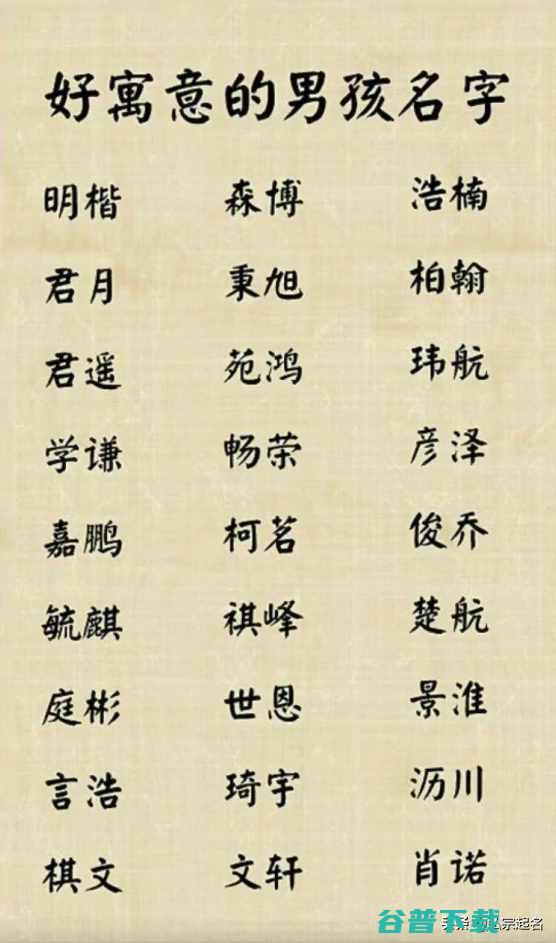 好寓意的男孩名字
明楷 森博 浩楠
君月 秉旭 柏翰
君遥 苑鸿 玮航
学谦 畅荣 彦泽
嘉鹏 柯茗 俊乔
毓麒 祺峰 楚航
庭彬 世恩 景淮
言浩 琦宇 沥川
棋文 文轩 肖诺
谷普下载
宗起名